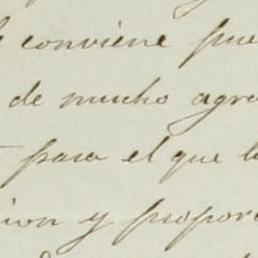 conviene pue
de mucho agra
para el que l
ion y propor